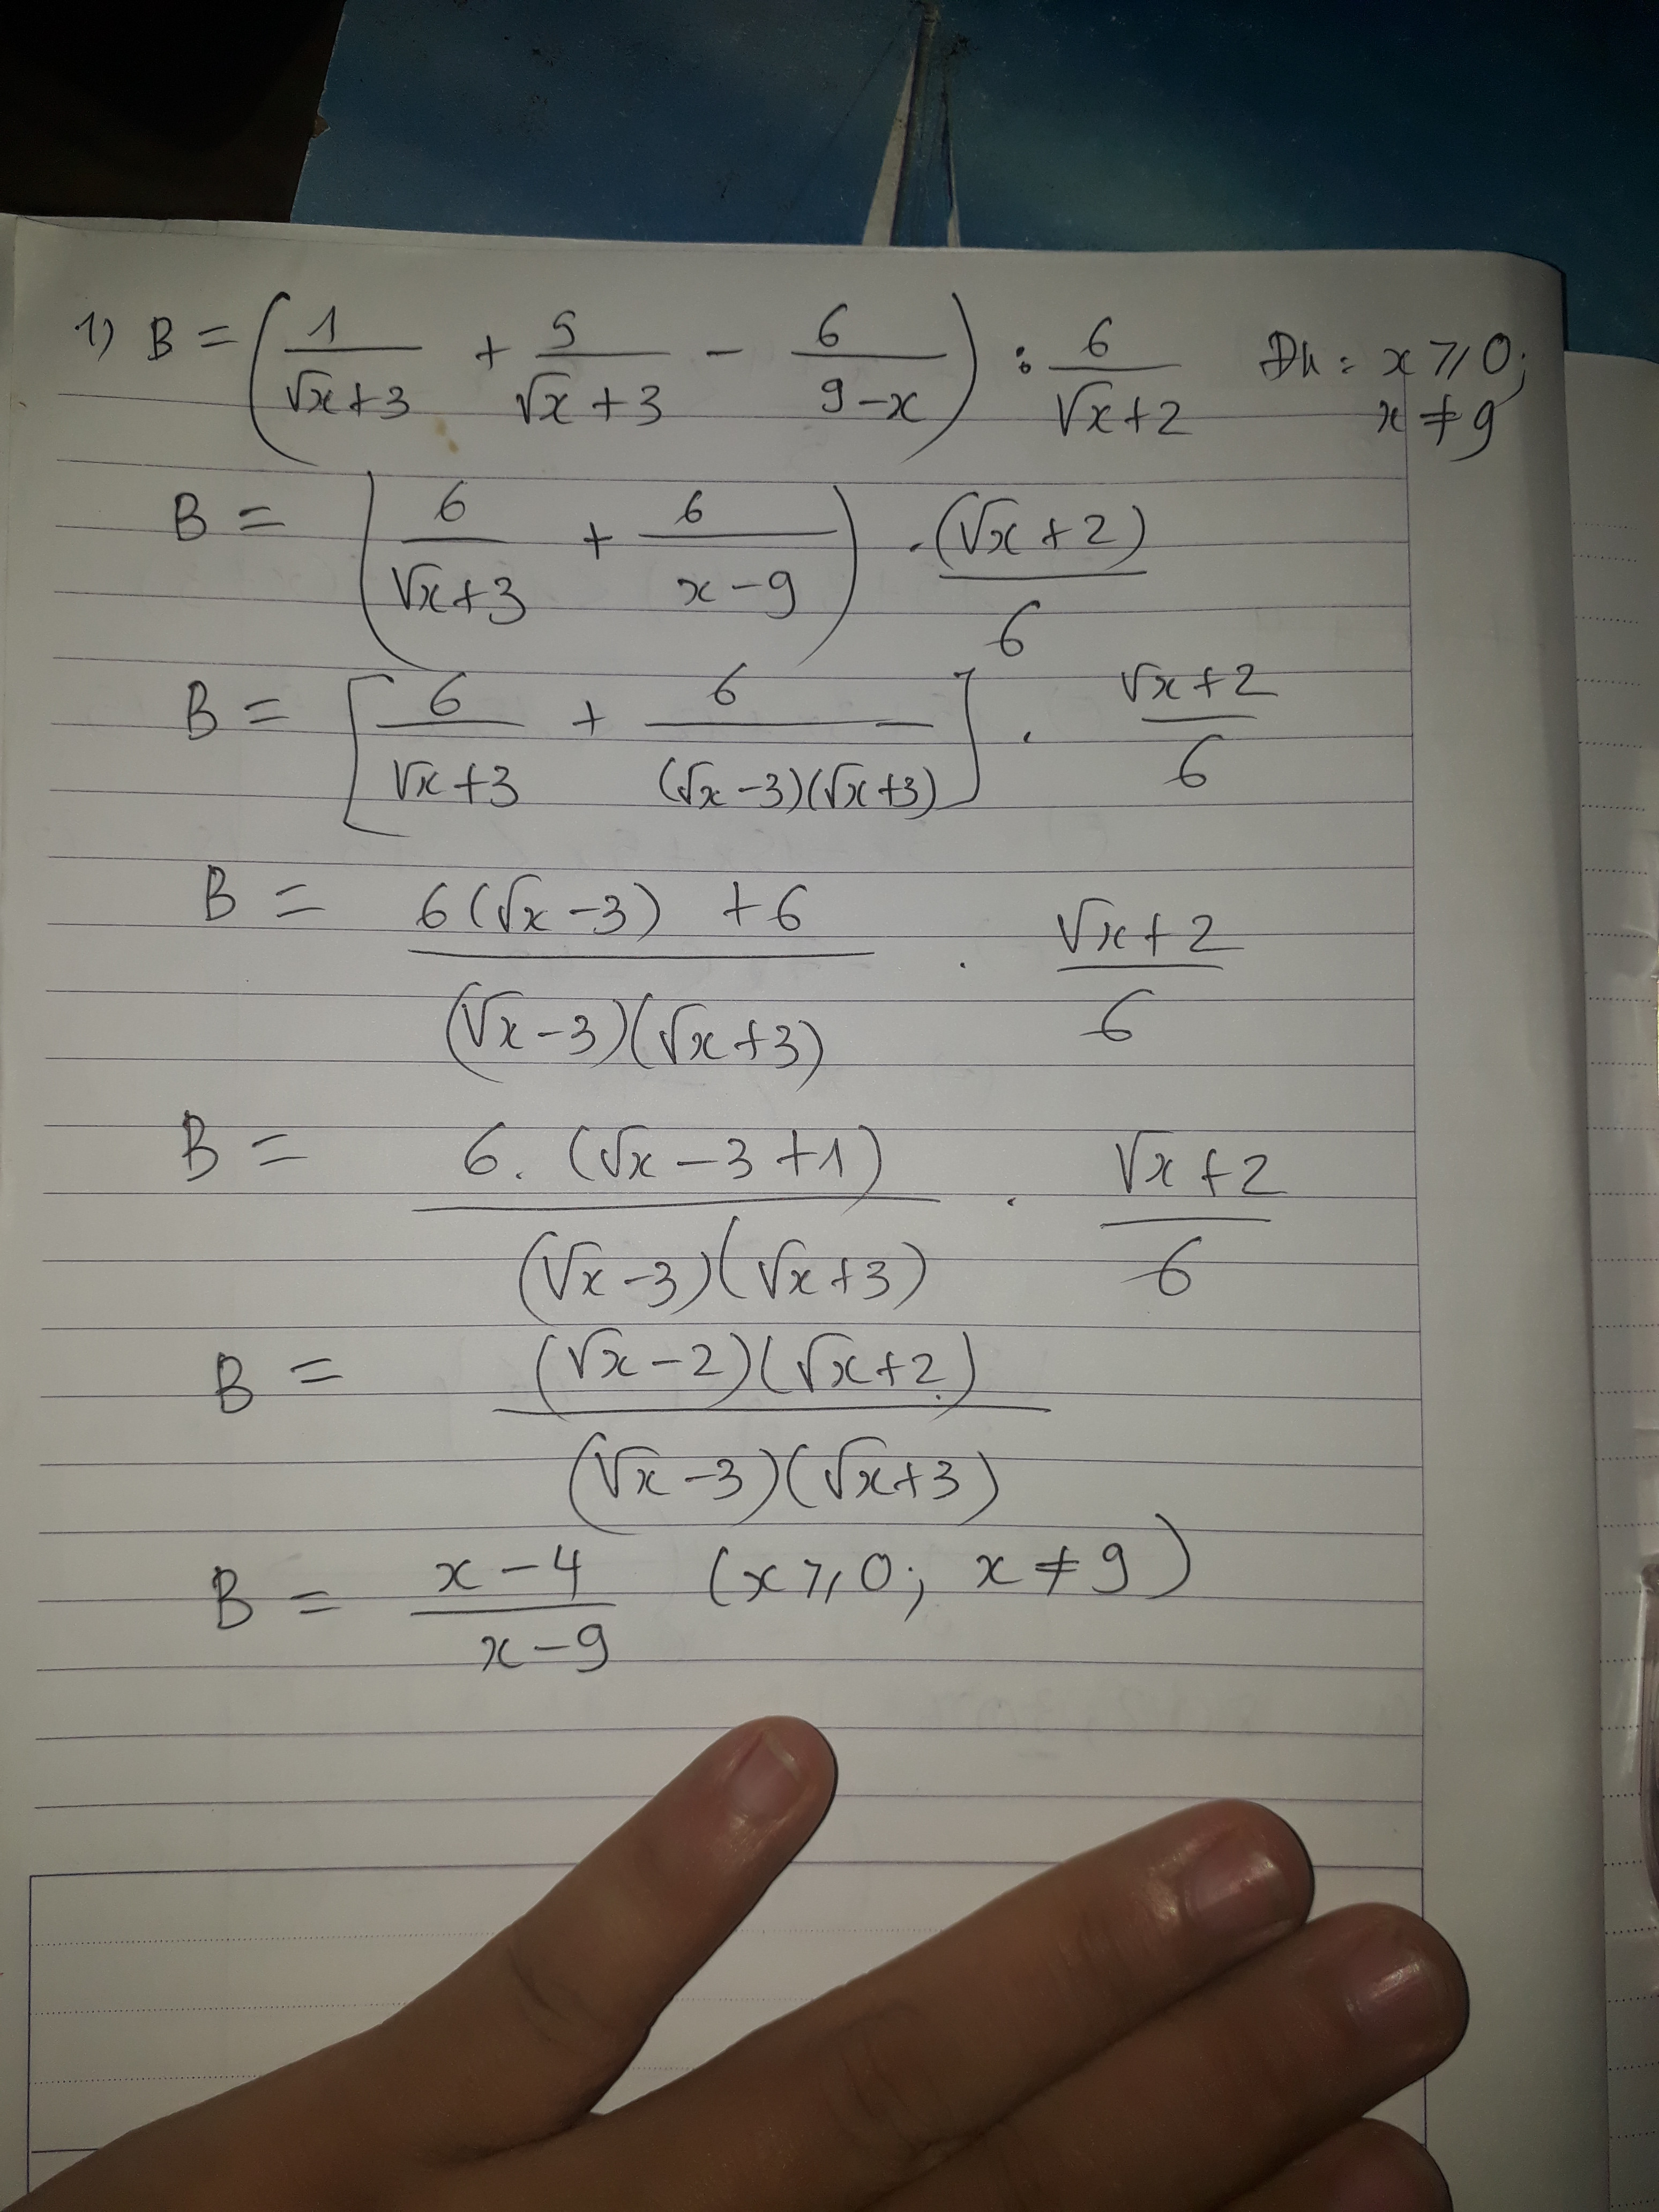 1) B = (1/(√x+3) + 5/(√x+3) - 6/(9-x)) : 6/(√x+2) Đk: x ⩾ 0; x ≠ 9
B = (6/(√x+3) + 6/(x-9)) . (√x+2)/6
B = [6/(√x+3) + 6/((√x-3)(√x+3))] . (√x+2)/6
B = (6(√x-3) + 6)/((√x-3)(√x+3)) . (√x+2)/6
B = (6.(√x-3+1))/((√x-3)(√x+3)) . (√x+2)/6
B = ((√x-2)(√x+2))/((√x-3)(√x+3))
B = (x-4)/(x-9) (x ⩾ 0; x ≠ 9)